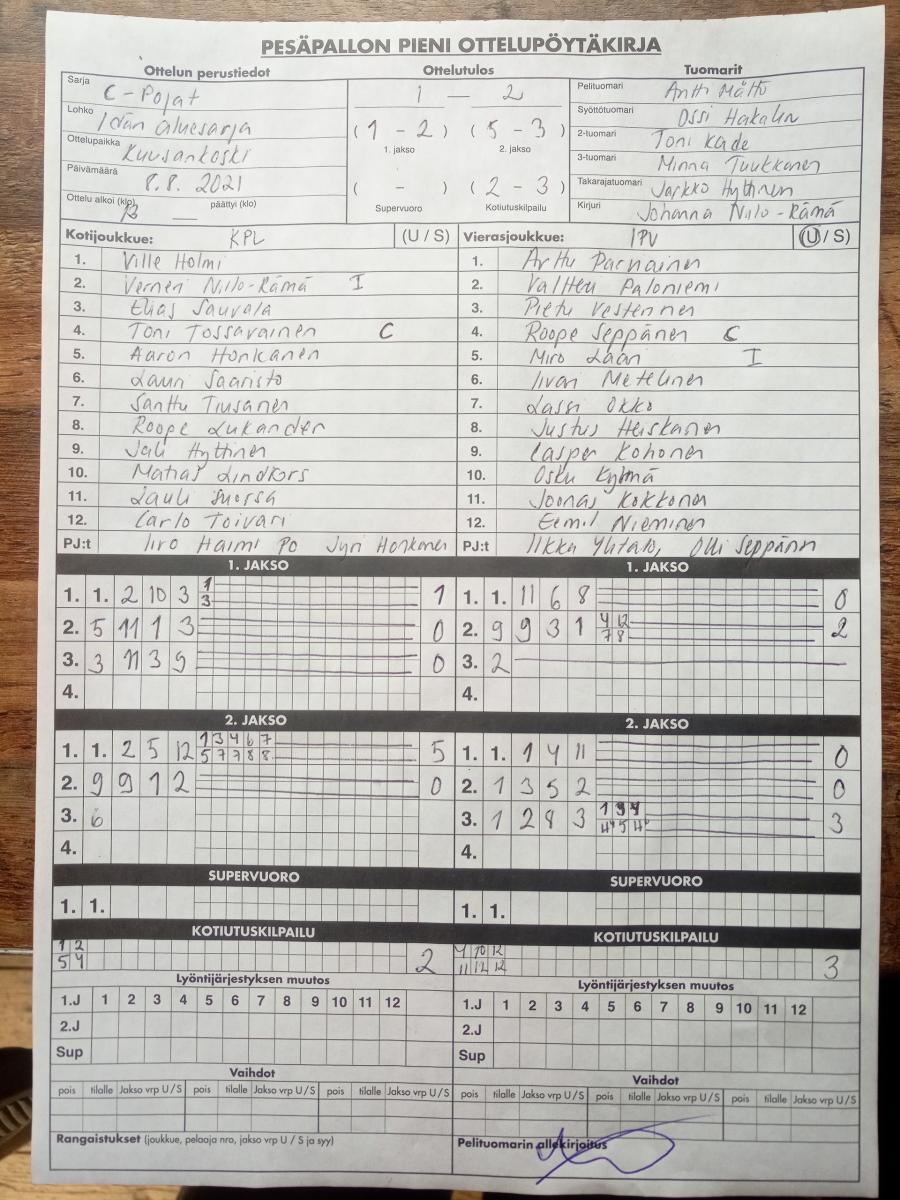 PESÄPALLON PIENI OTTELUPÖYTÄKIRJA
Ottelun perustiedot Ottelutulos Tuomarit
Sarja C-Pojat
Lohko Idän aluesarja
Ottelupaikka Kuusankoski
Päivämäärä 8.8. 2021
Ottelu alkoi (klo) 13 päättyi (klo)
1 — 2
( 1 - 2 ) ( 5 - 3 )
1. jakso 2. jakso
( - ) ( 2 - 3 )
Supervuoro Kotiutuskilpailu
Pelituomari Antti Mättö
Syöttötuomari Ossi Hakalin
2-tuomari Toni Kade
3-tuomari Minna Tuukkanen
Takarajatuomari Jarkko Hyttinen
Kirjuri Johanna Niilo-Rämä
Kotijoukkue: KPL (U / S)
1. Ville Holmi
2. Verneri Niilo-Rämä I
3. Elias Sauvala
4. Toni Tossavainen C
5. Aaron Honkanen
6. Lauri Saaristo
7. Santtu Tiusanen
8. Roope Lukander
9. Jali Hyttinen
10. Matias Lindfors
11. Lauli
12. Carlo Toivari
PJ:t Iiro Haimi PO Jyri Honkanen
Vierasjoukkue: IPV (U / S)
1. Arttu Parnainen
2. Valtteri Paloniemi
3. Pietu Vesterinen
4. Roope Seppänen C
5. Miro Laari I
6. Iivari Metelinen
7. Lassi Okko
8. Justus Heiskanen
9. Casper Kohonen
10. Osku Kylmä
11. Joonas Kokkonen
12. Eemil Nieminen
PJ:t Iikka Ylitalo, Olli Seppänen
1. JAKSO
1. 1. 2 10 3 1 1
3
2. 5 11 1 3 0
3. 3 11 3 5 0
4.
1. JAKSO
1. 1. 11 6 8 0
2. 9 9 3 1 4 12 2
7 8
3. 2
4.
2. JAKSO
1. 1. 2 5 12 1 3 4 6 7 5
5 7 7 8 8
2. 9 9 1 2 0
3. 6
4.
2. JAKSO
1. 1. 1 4 11 0
2. 1 3 5 2 0
3. 1 2 8 3 1 3 4 3
4.
SUPERVUORO
1. 1.
SUPERVUORO
1. 1.
KOTIUTUSKILPAILU
1 2
5 4 2
KOTIUTUSKILPAILU
4 10 12
11 12 12 3
Lyöntijärjestyksen muutos
1.J 1 2 3 4 5 6 7 8 9 10 11 12
2.J
Sup
Lyöntijärjestyksen muutos
1.J 1 2 3 4 5 6 7 8 9 10 11 12
2.J
Sup
Vaihdot
pois tilalle Jakso vrp U / S pois tilalle Jakso vrp U / S pois tilalle Jakso vrp U / S
Vaihdot
pois tilalle Jakso vrp U / S pois tilalle Jakso vrp U / S pois tilalle Jakso vrp U / S
Rangaistukset (joukkue, pelaaja nro, jakso vrp U / S ja syy)
Pelituomarin allekirjoitus